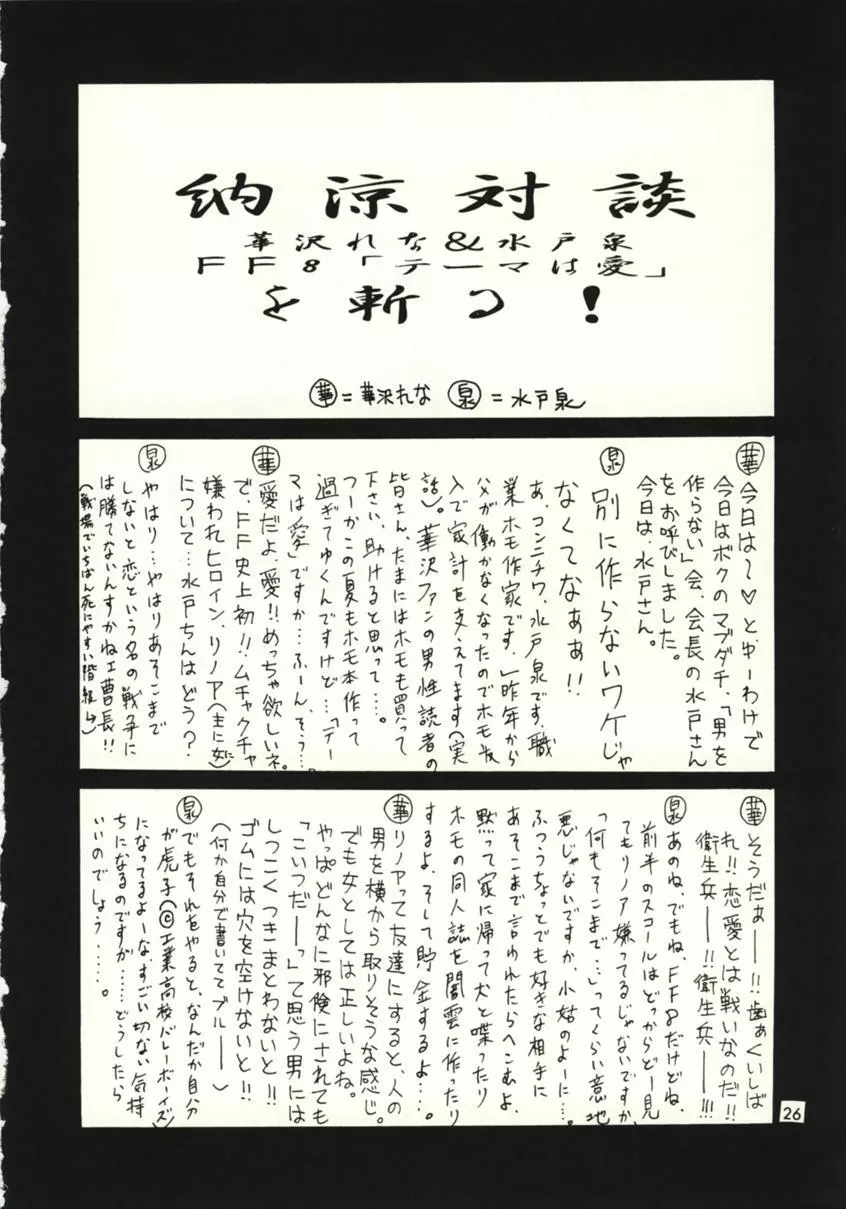 納涼対談
華沢れな&水戸泉
FF8「テーマは愛」
を斬る!
華=華沢れな 泉=水戸泉
華 今日は〜♡と、ゆーわけで
今日はボクのマブダチ、「男を
作らない」会、会長の水戸さん
をお呼びしました。
今日は、水戸さん。
泉 別に作らないワケじゃ
なくてなぁぁ!!
あ、コンニチワ、水戸泉です。職
業ホモ作家です。昨年から
パパが働かなくなったのでホモ収
入で家計を支えてます(実
話)。華沢ファンの男性読者の
皆さん、たまにはホモも買って
下さい、助けると思って…。
つーかこの夏もホモ本作って
過ぎてゆくんですけど…「テー
マは愛」ですか…ふーん、そう…。
華 愛だよ、愛!!めっちゃ欲しいネ。
で、FF史上初!!ムチャクチャ
嫌われヒロイン、リノア(主に女に)
について…水戸ちんはどう?
泉 やはり…やはりあそこまで
しないと恋という名の戦争に
は勝てないんすかねェ曹長!!
(戦場でいちばん死にやすい階級↑)
華 そうだぁー!!歯ぁくいしば
れ!!恋愛とは戦いなのだ!!
衛生兵ー!!衛生兵ー!!!
泉 あのね、でもね、FF8だけどね、
前半のスコールはどっからどー見
てもリノア嫌ってるじゃないですか、
「何もそこまで…」ってくらい意地
悪じゃないですか、小姑のよーに…。
ふつうちょっとでも好きな相手に
あそこまで言われたらへこむよ、
黙って家に帰って犬と喋ったり
ホモの同人誌を闇雲に作ったり
するよ、そして貯金するよ…。
華 リノアって友達にすると、人の
男を横から取りそうな感じ。
でも女としては正しいよね。
やっぱどんなに邪険にされても
「こいつだーっ」て思う男には
しつこくつきまとわないと!!
ゴムには穴を空けないと!!
(何か自分で書いててブルー)
泉 でもそれをやると、なんだか自分
が虎子(©工業高校バレーボーイズ)
になってるよーな、すごい切ない気持
ちになるのですが……どうしたら
いいのでしょう……。
26